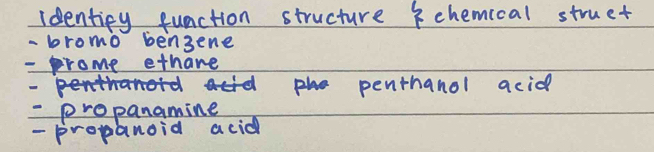 identify function structure & chemical struct
- bromo benzene
- prome ethane
- penthanoid acid pha penthanol acid
- propanamine
- propanoid acid